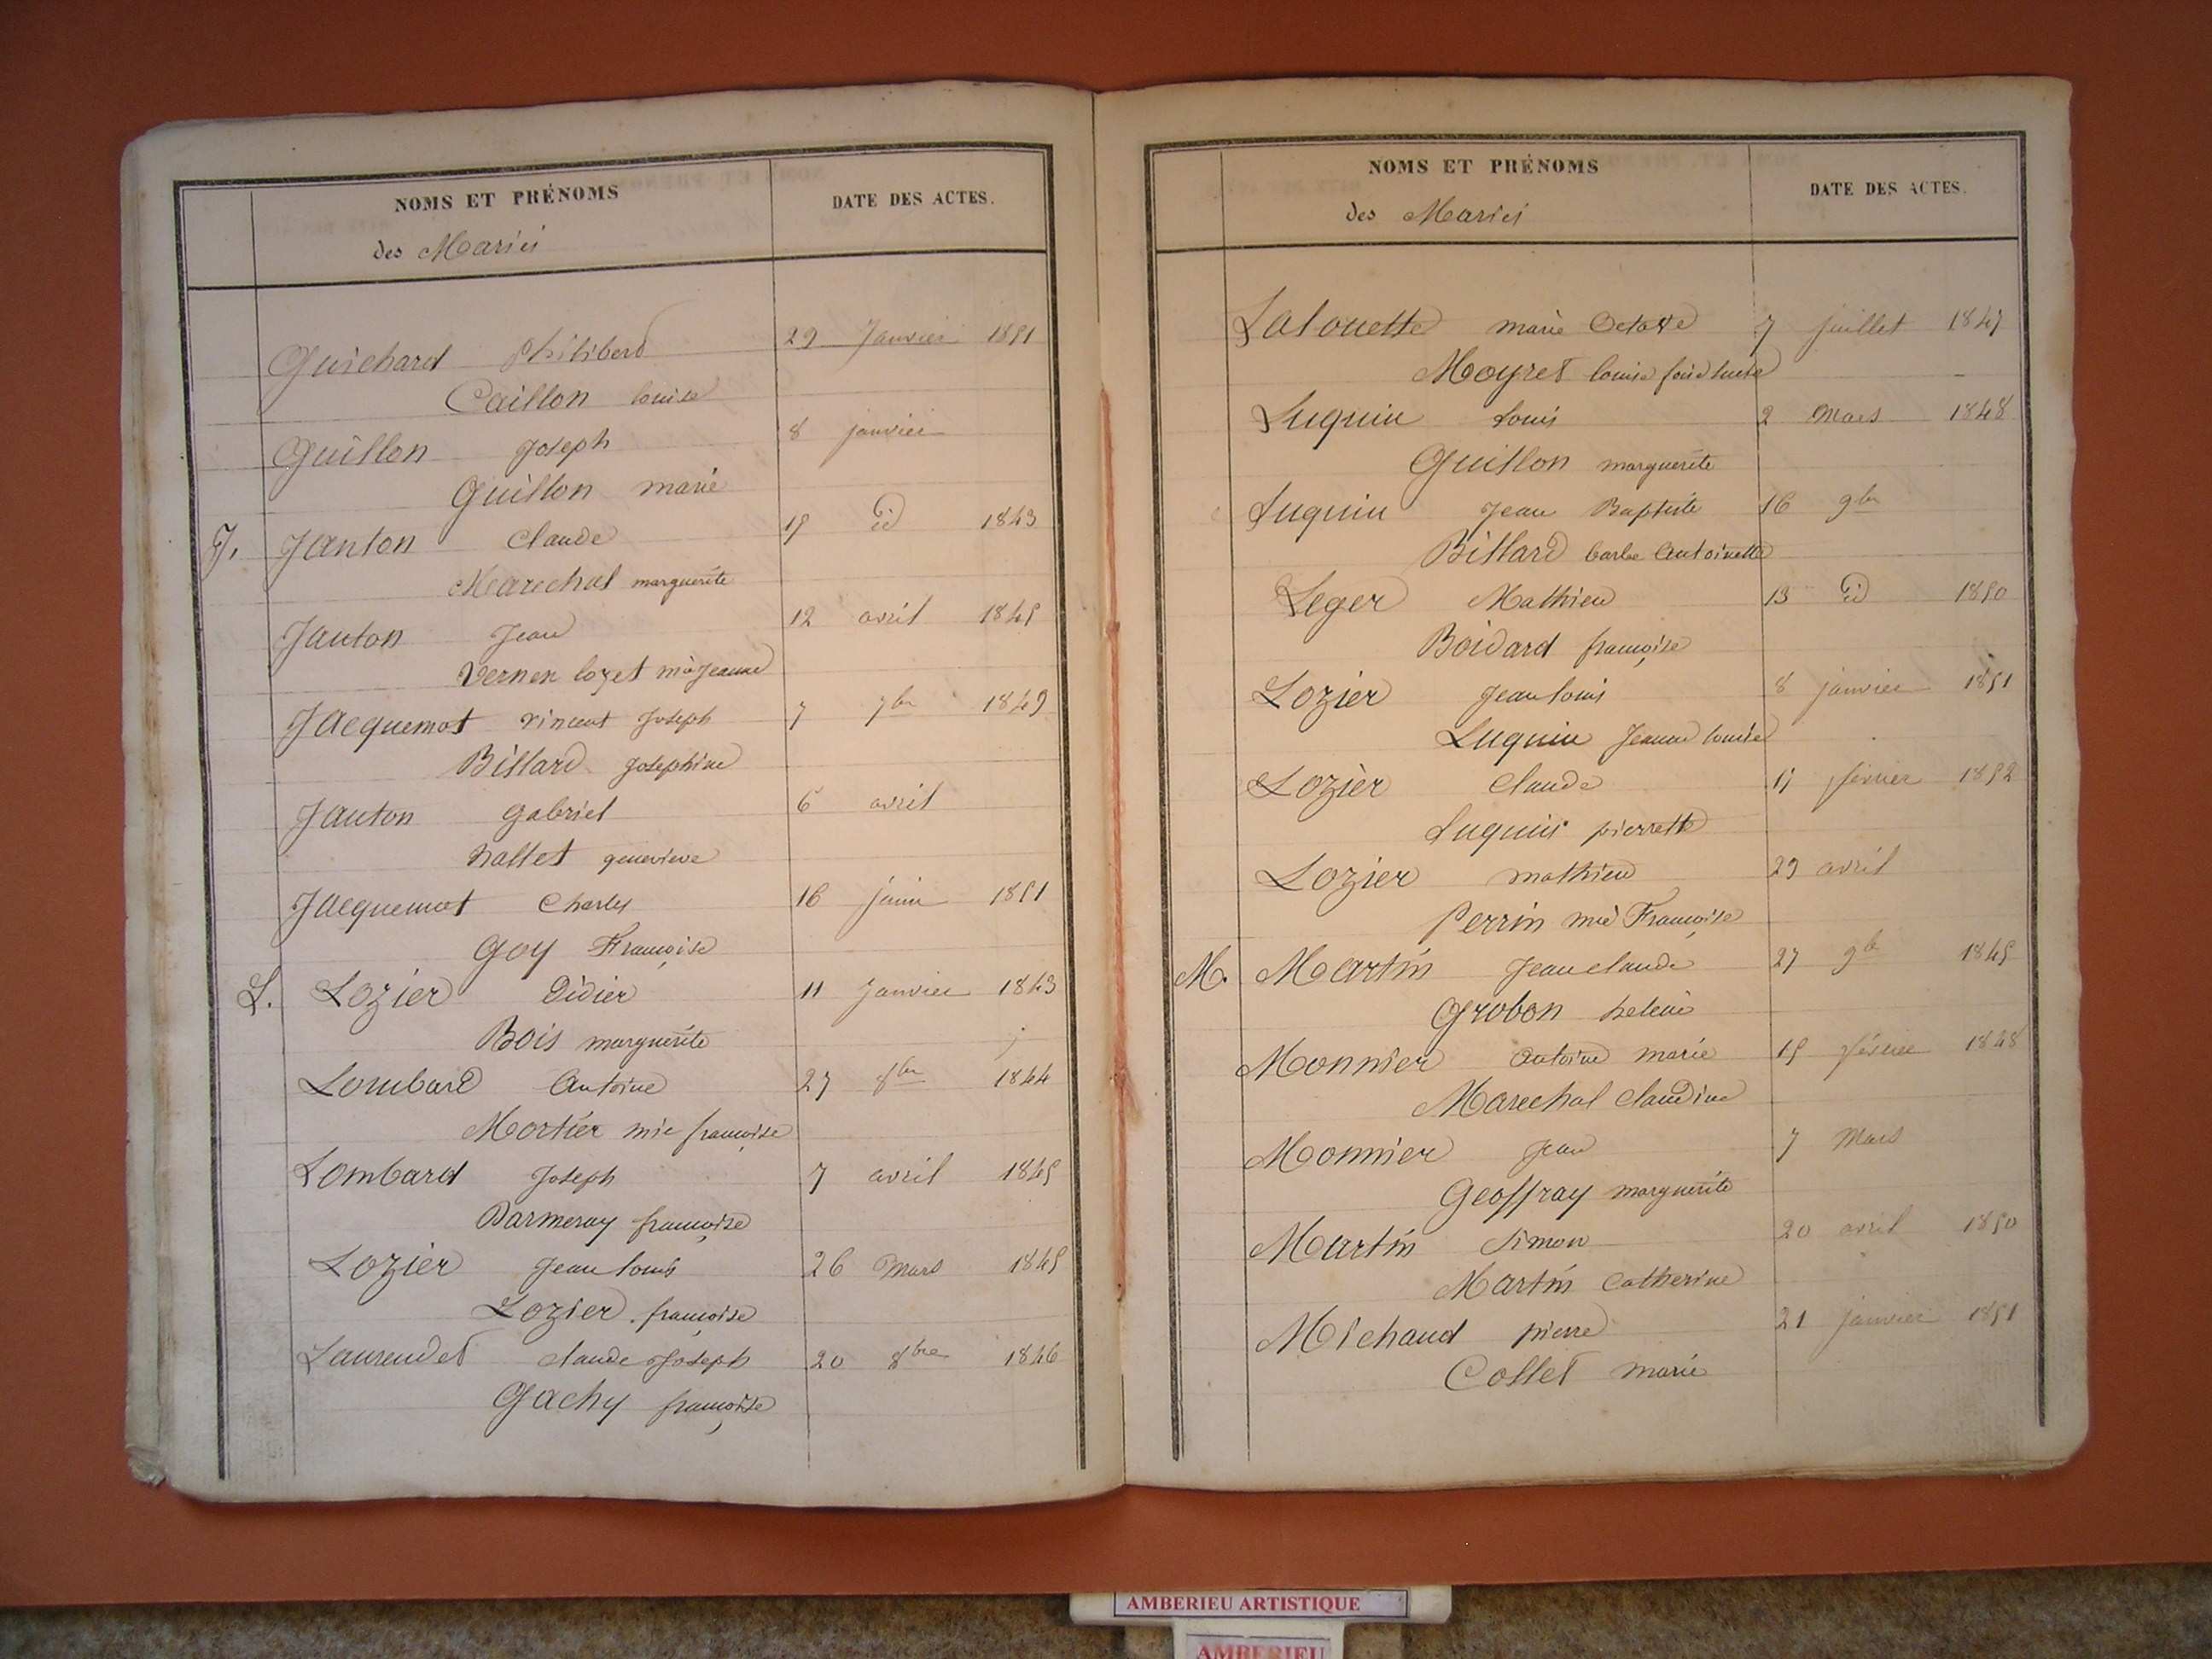 NOMS ET PRÉNOMS DATE DES ACTES.
des Mariés
Guichard Philiberd 29 Janvier 1851
Caillon louise
Guillon Joseph 8 janvier
Guillon marie
J. Janton Claude 15 id 1843
Marechal marguerite
Janton Jean 12 avril 1845
Verner lozet mie Jeanne
Jacquemot vincent Joseph 7 7bre 1849
Billard Josephine
Janton gabriel 6 avril
Nallet genevieve
Jacquemot Charles 16 juin 1851
Goy Françoise
L. Lozier Didier 11 Janvier 1843
Bois marguerite
Lombard Antoine 27 8bre 1844
Mortier mie françoise
Lombard Joseph 7 avril 1845
Darmeray françoise
Lozier Jean louis 26 Mars 1845
Lozier françoise
Laurendet claude Joseph 20 8bre 1846
Gachy françoise
NOMS ET PRÉNOMS DATE DES ACTES.
des Mariés
Lalouette marie Octave 7 juillet 1847
Moyret louise
Luquin Louis 2 Mars 1848
Guillon marguerite
Luquin Jean Baptiste 16 9bre
Billard barbe Antoinette
Leger Mathieu 13 id 1850
Boidard françoise
Lozier Jean louis 8 janvier 1851
Luquin Jeanne louise
Lozier Claude 11 février 1852
Luquin pierrette
Lozier mathieu 29 avril
Perrin mie Françoise
M. Martin Jean claude 27 9bre 1845
Grobon helene
Monnier Antoine marie 15 février 1848
Marechal Claudine
Monnier Jean 7 Mars
Geoffray marguerite
Martin Simon 20 avril 1850
Martin Catherine
Michaud pierre 21 janvier 1851
Collet marie
AMBERIEU ARTISTIQUE
AMBERIEU